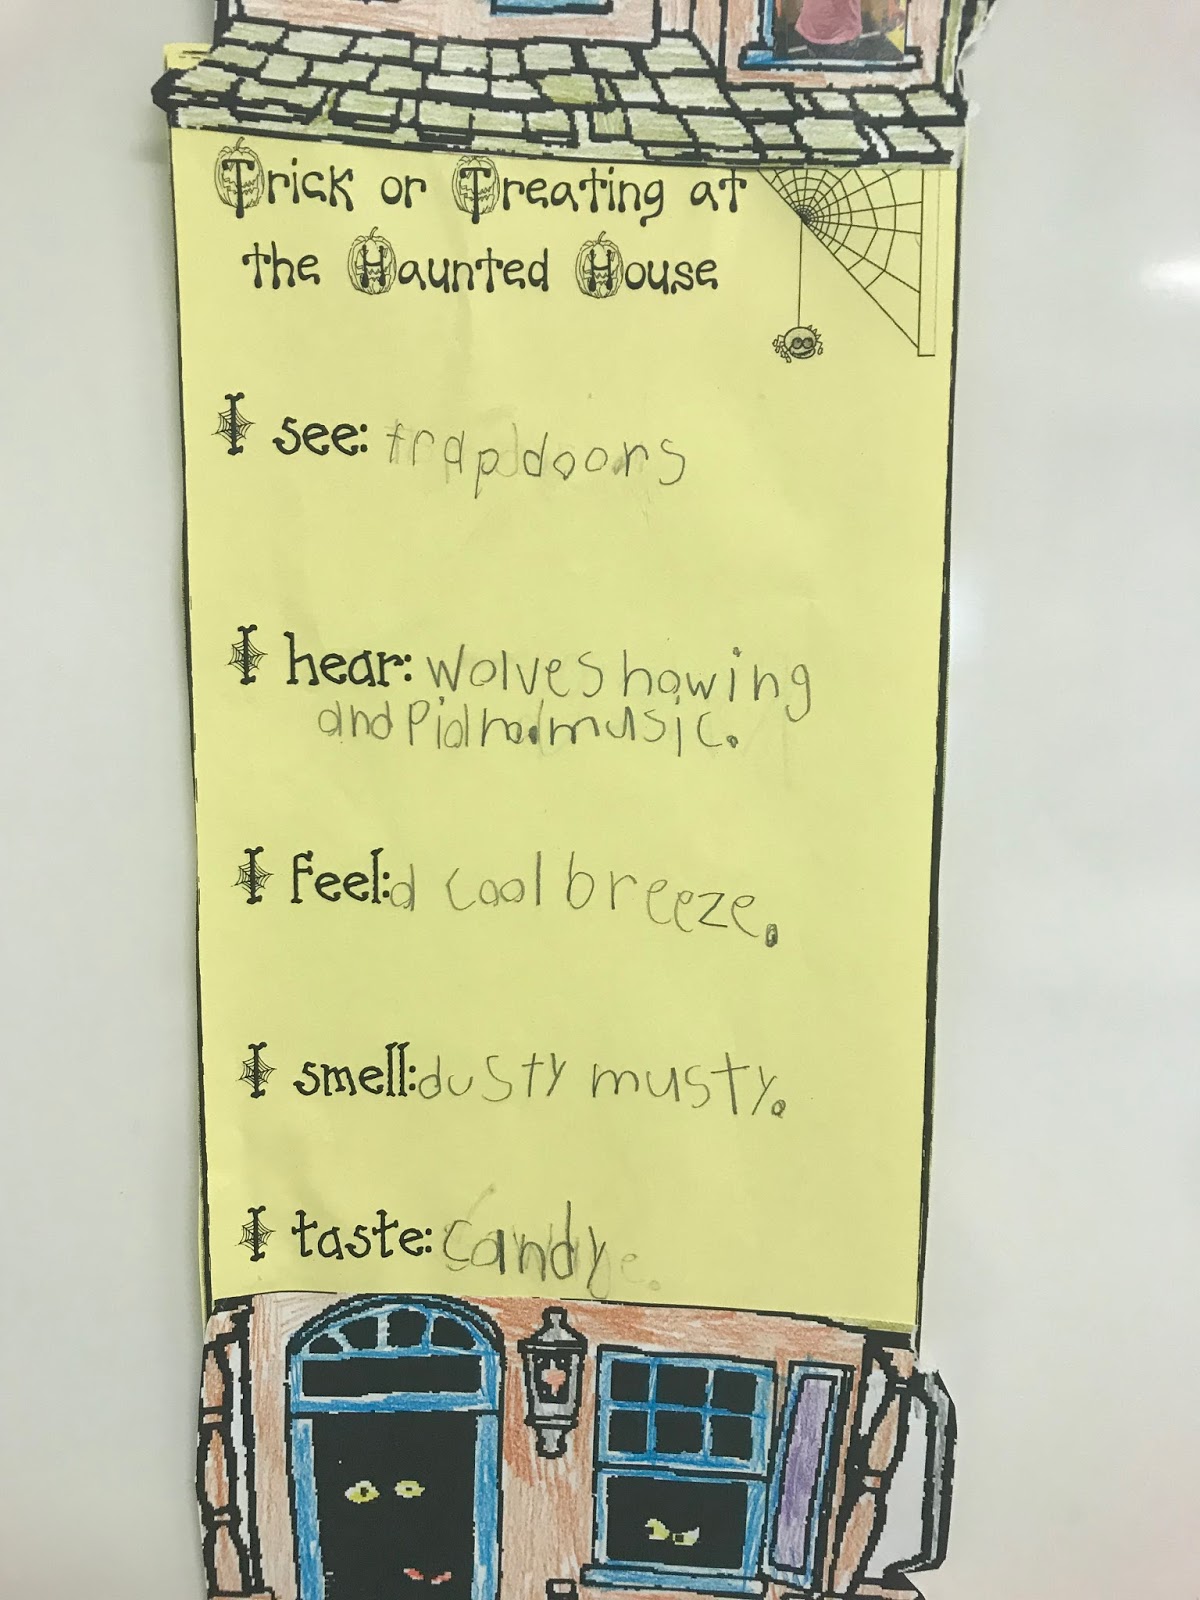 Trick or Treating at
the Haunted House
I see: trap doors
I hear: wolves howing
and Piano music.
I feel: a cool breeze.
I smell: dusty musty.
I taste: candy